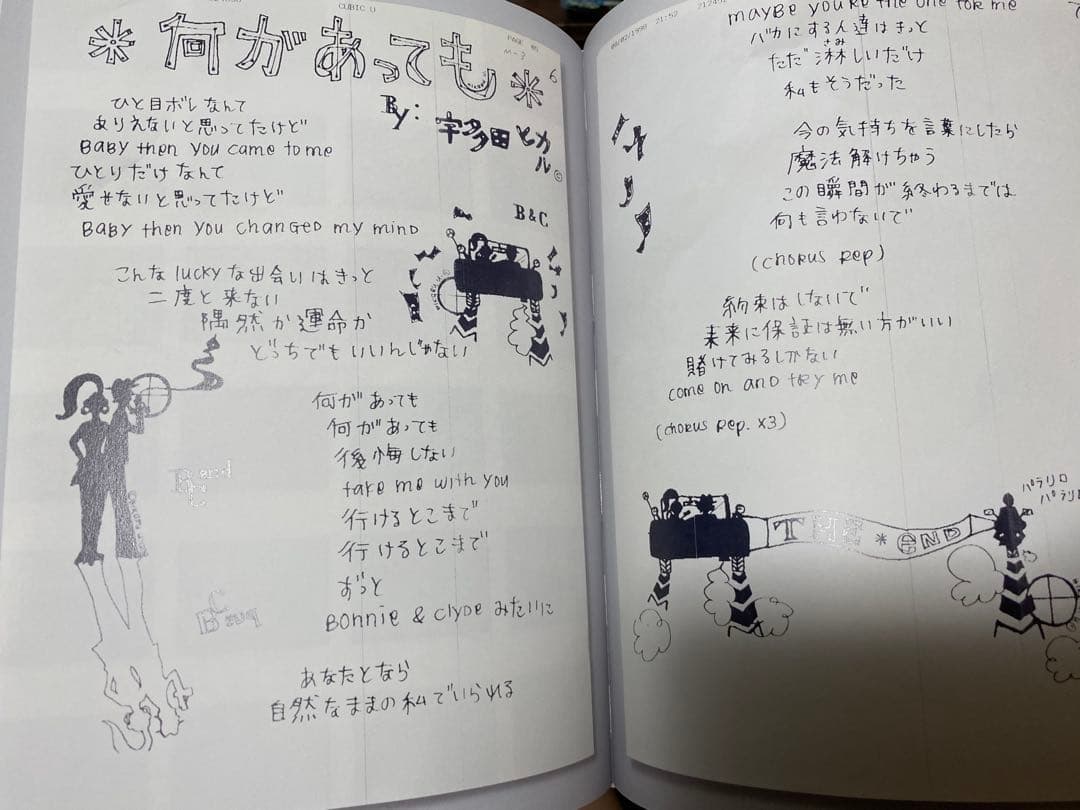 CUBIC U
PAGE 05
M-3
6
*何があっても*
By: 宇多田ヒカル
ひと目ボレなんて
ありえないと思ってたけど
BABY then you came to me
ひとりだけなんて
愛せないと思ってたけど
BABY then you changed my mind
B&C
こんなluckyな出会いはきっと
二度と来ない
偶然か運命か
どっちでもいいんじゃない
何があっても
何があっても
後悔しない
take me with you
行けるとこまで
行けるとこまで
ずっと
Bonnie & Clyde みたいに
B and C
あなたとなら
自然なままの私でいられる
08/02/1998 21:52
maybe you're the one for me
バカにする人達はきっと
ただ淋しいだけ
さみ
私もそうだった
今の気持ちを言葉にしたら
魔法解けちゃう
この瞬間が終わるまでは
何も言わないで
(chorus rep)
約束はしないで
未来に保証は無い方がいい
賭けてみるしかない
come on and try me
(chorus rep. x3)
パラリロ
パラリロ
THE * END